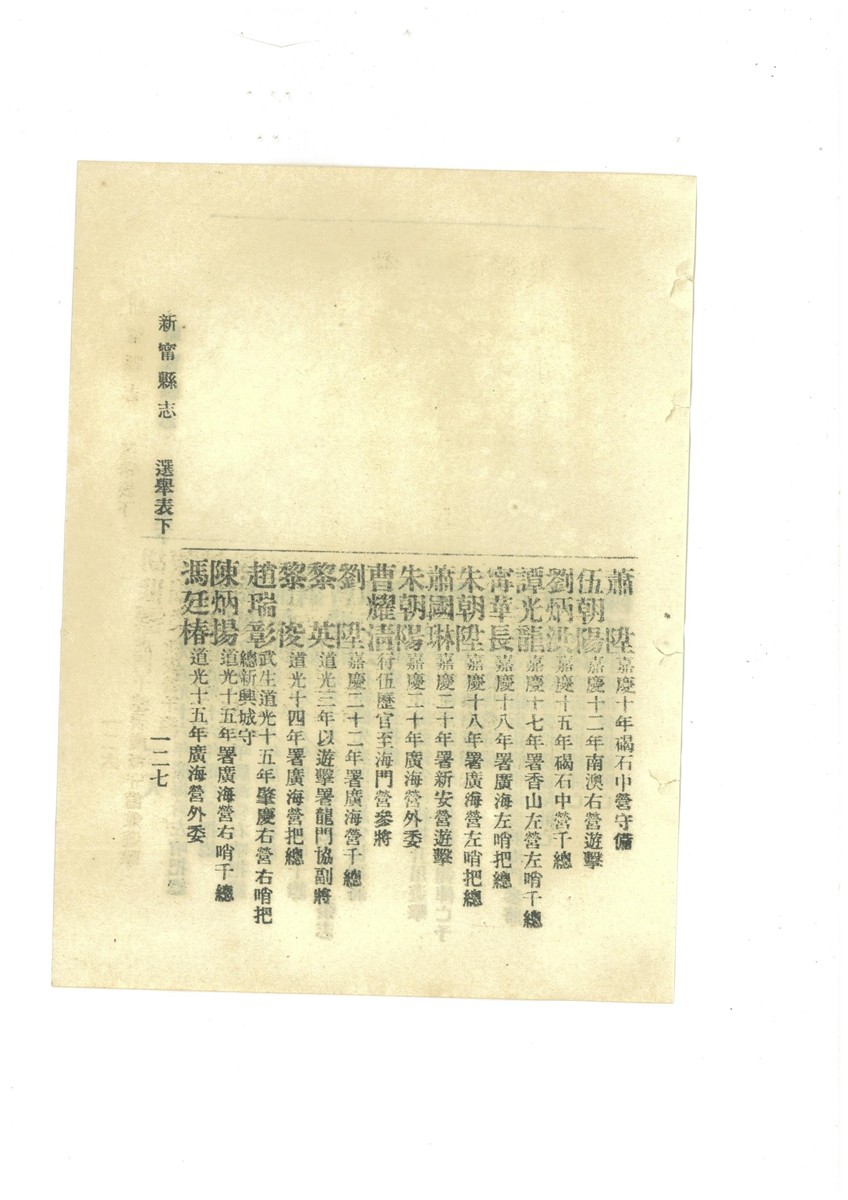 蕭　陞 嘉慶十年碣石中營守備
伍朝陽 嘉慶十二年南澳右營遊擊
劉炳 嘉慶十五年碣石中營千總
譚光龍 嘉慶十七年署香山左營左哨千總
甯華長 嘉慶十八年署廣海左哨把總
朱朝陞 嘉慶十八年署廣海營左哨把總
蕭國琳 嘉慶二十年署新安營遊擊
朱朝陽 嘉慶二十年廣海營外委
曹耀清 行伍歷官至海門營參將
劉　陞 嘉慶二十二年署廣海營千總
黎　英 道光三年以遊擊署龍門協副將
黎　俊 道光十四年署廣海營把總
趙瑞彰 武生道光十五年肇慶右營右哨把
總新興城守
陳炳揚 道光十五年署廣海營右哨千總
馮廷椿 道光十五年廣海營外委
新甯縣志　選舉表下　一二七